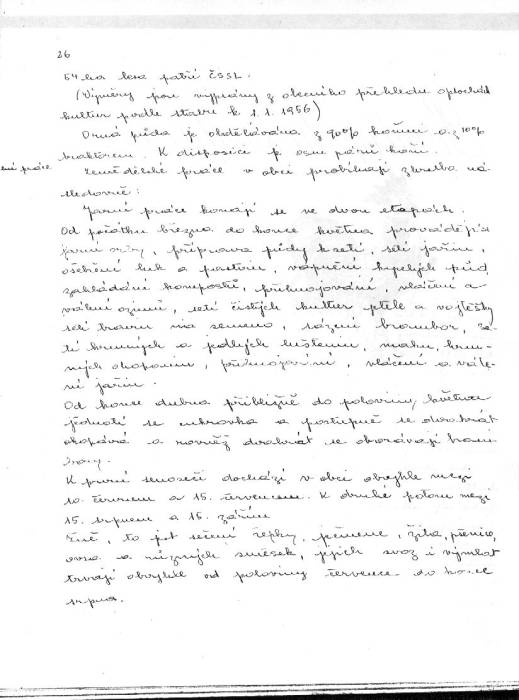 26
54 ha lesa patří ČSSL.
(Výměry jsou vypsány z obecního přehledu o plochách
kultur podle stavu k 1. 1. 1956)
Orná půda je obdělávána z 90% koňmi a z 10%
traktorem. K disposici je osm párů koní.
ní práce
Zemědělské práce v obci probíhají zhruba ná-
sledovně:
Jarní práce konají se ve dvou etapách.
Od počátku března do konce května provádějí se
jarní orby, příprava půdy k setí, setí jařin,
ošetření luk a pastvin, vápnění kyselých půd,
zakládání kompostů, přihnojování, vláčení a
válení ozimů, setí čistých kultur jetele a vojtěšky
setí travin na semeno, sázení brambor, se-
tí krmných a jedlých luštěnin, máku, krm-
ných okopanin, přihnojování, vláčení a vále-
ní jařin.
Od konce dubna přibližně do poloviny května
jednotí se cukrovka a postupně se dvakrát
okopává a rovněž dvakrát se oborávají bram-
bory.
K první senoseči dochází v obci obvykle mezi
10. červnem a 15. červencem. K druhé potom mezi
15. srpnem a 15. zářím.
Žně, to jest sečení řepky, ječmene, žita, pšenice,
ovsa a různých směsek, jejich svoz i výmlat
trvají obvykle od poloviny července do konce
srpna.